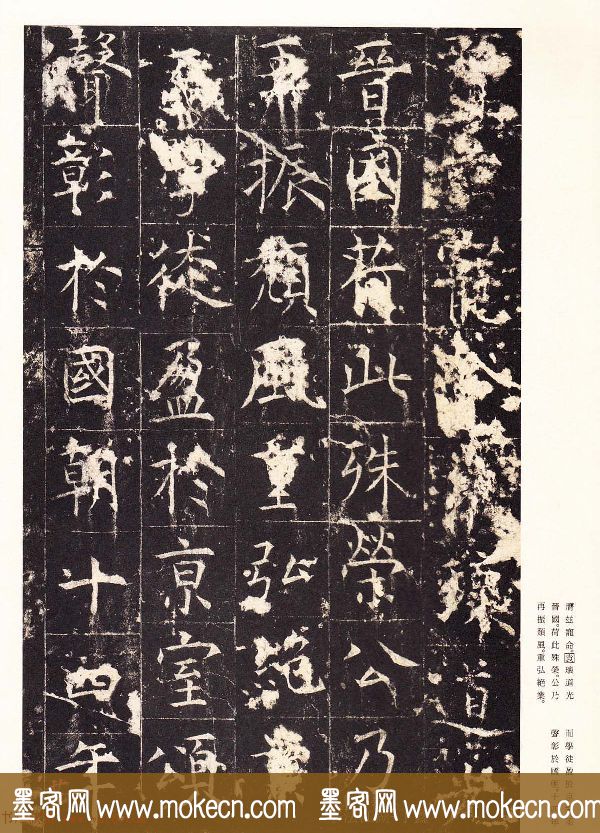 膺茲寵命道
晉國荷此殊榮公乃
再振頹風重弘絕業
而學徒盈於京室頌
聲彰於國朝十四年
膺茲寵命。道光
晉國。荷此殊榮。公乃
再振頹風。重弘絕業。
而學徒盈於
聲彰於國朝十
墨客网 www.mokecn.com 墨客网 www.mokecn.com